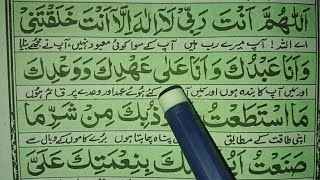 اَللّٰهُمَّ اَنْتَ رَبِّیْ لَآ اِلٰهَ اِلَّا اَنْتَ خَلَقْتَنِیْ
اے اللہ! آپ میرے رب ہیں آپ کے سوا کوئی معبود نہیں، آپ نے مجھے
وَاَنَا عَبْدُكَ وَاَنَا عَلٰى عَهْدِكَ وَوَعْدِكَ
اور میں آپ کا بندہ ہوں اور میں آپ کے عہد اور وعدے پر قائم ہوں
مَا اسْتَطَعْتُ بِكَ مِنْ شَرِّ مَا
اپنی طاقت کے مطابق پناہ چاہتا ہوں کاموں کے وبال سے
صَنَعْتُ لَكَ بِنِعْمَتِكَ عَلَیَّ